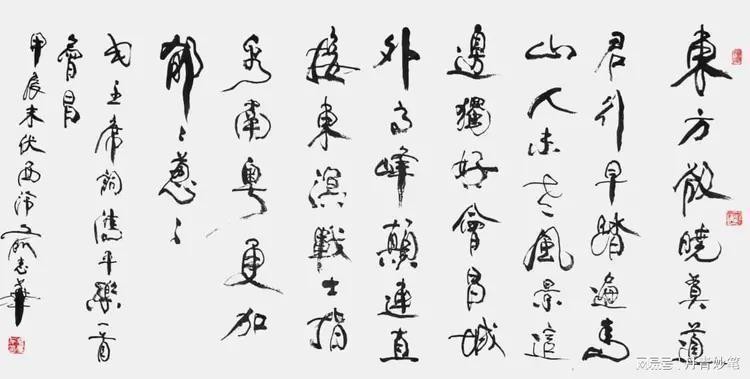 東方欲曉莫道
君行早踏遍青
山人未老風景這
邊獨好會昌城
外高峰顛連直
接東溟戰士指
看南粵更加
郁々蔥々
毛主席詞清平樂一首
會昌
甲辰末伏西志華
网易号 丹青妙笔